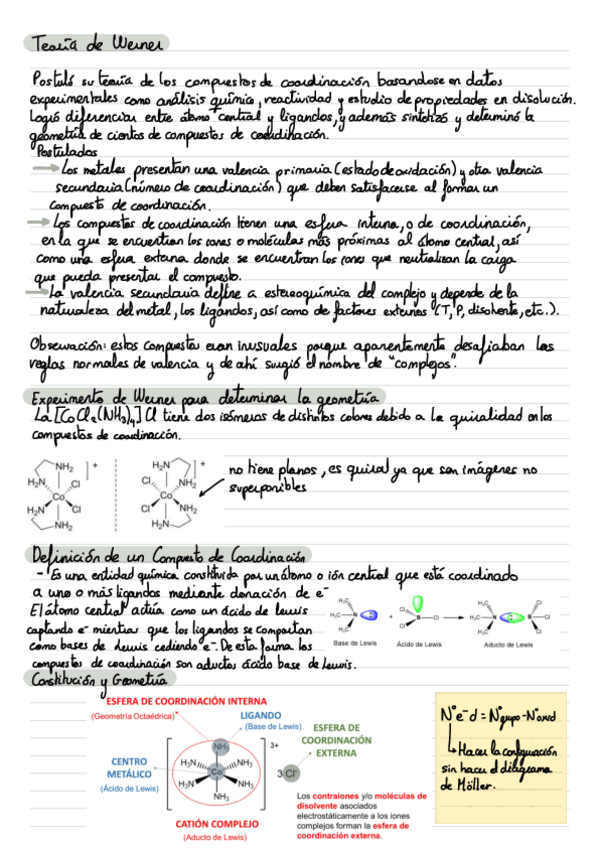 Teoría de Werner
Postuló su teoría de los compuestos de coordinación basandose en datos
experimentales como análisis químico, reactividad y estudio de propiedades en disolución.
Logró diferenciar entre átomo central y ligandos, y además sintetizó y determinó la
geometría de cientos de compuestos de coordinación.
Postulados
→ Los metales presentan una valencia primaria (estado de oxidación) y otra valencia
secundaria (número de coordinación) que deben satisfacerse al formar un
compuesto de coordinación.
→ Los compuestos de coordinación tienen una esfera interna, o de coordinación,
en la que se encuentran los iones o moléculas más próximas al átomo central, así
como una esfera externa donde se encuentran los iones que neutralizan la carga
que pueda presentar el compuesto.
→ La valencia secundaria define a estereoquímica del complejo y depende de la
naturaleza del metal, los ligandos, así como de factores externos (T, P, disolvente, etc.).
Observación: estos compuestos eran inusuales porque aparentemente desafiaban las
reglas normales de valencia y de ahí surgió el nombre de "complejos".
Experimento de Werner para determinar la geometría
La [CoCl2(NH3)4]Cl tiene dos isómeros de distintos colores debido a la quiralidad en los
compuestos de coordinación.
NH2 + H2N +
H2N Cl Cl NH2
Co Co
H2N Cl Cl NH2
NH2 H2N
no tiene planos, es quiral ya que son imágenes no
superponibles
Definición de un Compuesto de Coordinación
- Es una entidad química constituida por un átomo o ión central que está coordinado
a uno o más ligandos mediante donación de e-
El átomo central actúa como un ácido de lewis
captando e- mientras que los ligandos se comportan
como bases de lewis cediendo e-. De esta forma los
compuestos de coordinación son aductos ácido base de lewis.
H3C H3C N H3C + Cl Cl B Cl → H3C H3C N H3C B Cl Cl Cl
Base de Lewis Ácido de Lewis Aducto de Lewis
Constitución y Geometría
ESFERA DE COORDINACIÓN INTERNA
(Geometría Octaédrica)
LIGANDO
(Base de Lewis)
ESFERA DE
COORDINACIÓN
EXTERNA
CENTRO
METÁLICO
(Ácido de Lewis)
NH3 3+
H3N NH3
Co
H3N NH3
NH3
3 Cl-
CATIÓN COMPLEJO
(Aducto de Lewis)
Los contraiones y/o moléculas de
disolvente asociados
electrostáticamente a los iones
complejos forman la esfera de
coordinación externa.
Nº e- d = Nº grupo - Nº oxid
↳ Hacer la configuración
sin hacer el diagrama
de Möller.